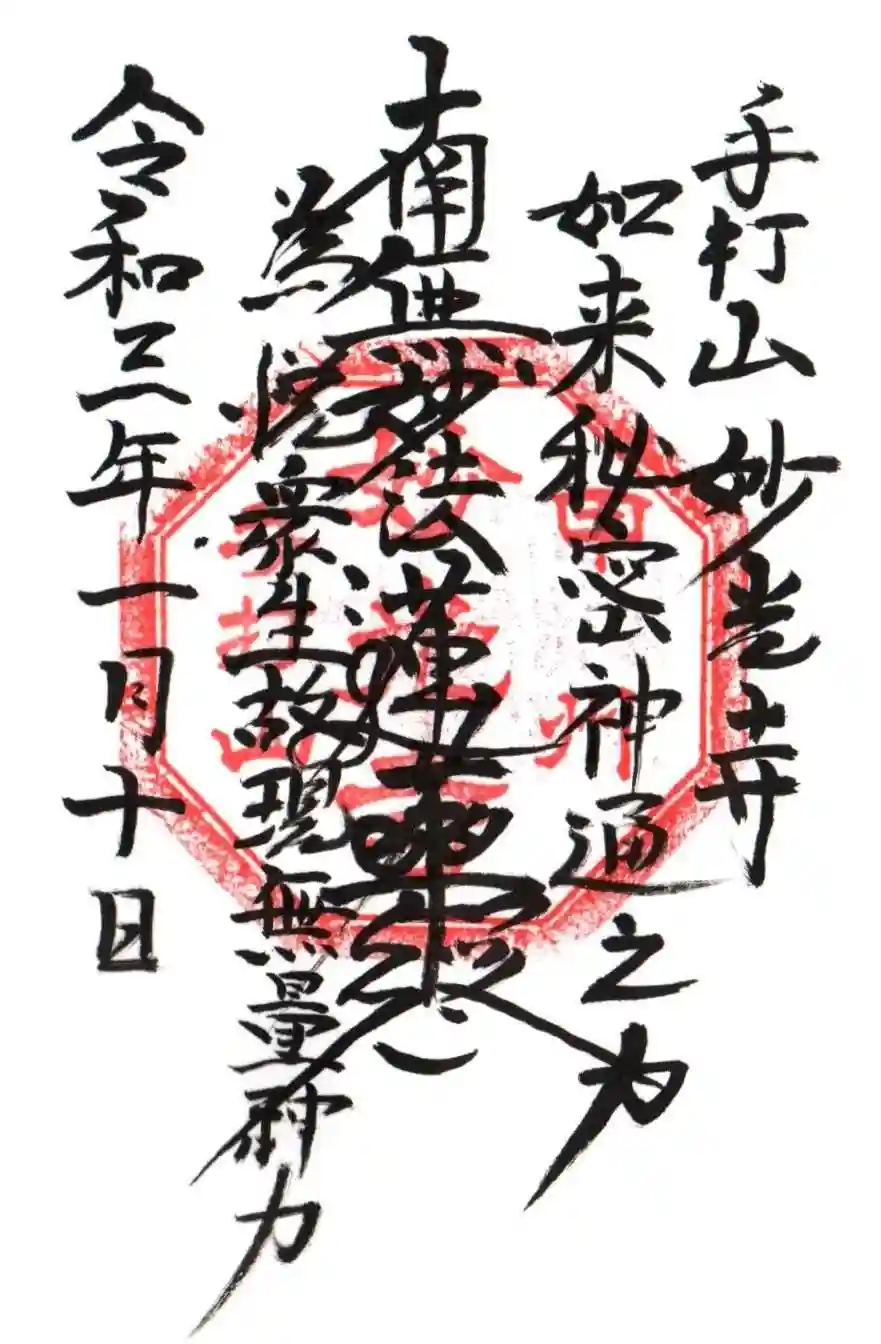 手打山 妙光寺
如来秘密神通之力
南無妙法蓮華経
為悦衆生故現無量神力
令和三年一月十日